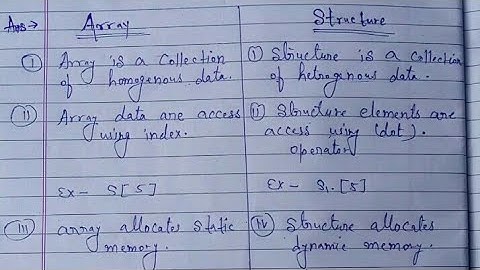 Ans →
Array
Structure
(i) Array is a collection
of homogenous data.
(i) Structure is a collection
of hetrogenous data.
(ii) Array data are access
using index.
(ii) Structure elements are
access using (dot).
operator
Ex - S[5]
Ex - S1.[5]
(iii) array allocates static
memory.
(iv) Structure allocates
dynamic memory.